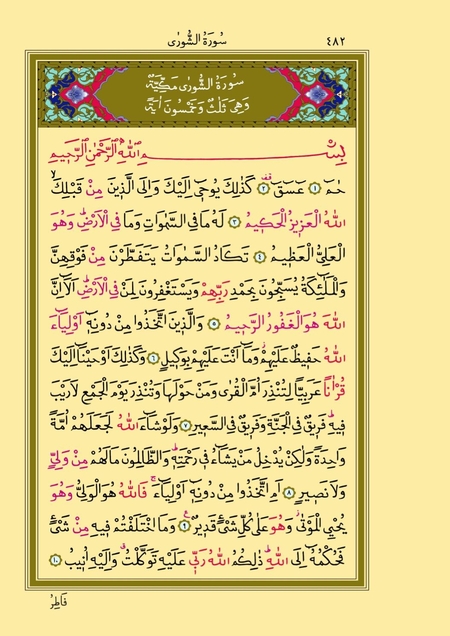 ٤٨٢ سورة الشورى
سُورَةُ الشُّورٰى مَكِّيَّةٌ
وَهِيَ ثَلٰثٌ وَخَمْسُونَ اٰيَةً
بِسْمِ اللّٰهِ الرَّحْمٰنِ الرَّحِيمِ
حٰمٓ ﴿١﴾ عٓسٓقٓ ﴿٢﴾ كَذٰلِكَ يُوحٓى اِلَيْكَ وَاِلَى الَّذِينَ مِنْ قَبْلِكَۙ
اللّٰهُ الْعَزِيزُ الْحَكِيمُ ﴿٣﴾ لَهُ مَا فِي السَّمٰوَاتِ وَمَا فِي الْاَرْضِۜ وَهُوَ
الْعَلِيُّ الْعَظِيمُ ﴿٤﴾ تَكَادُ السَّمٰوَاتُ يَتَفَطَّرْنَ مِنْ فَوْقِهِنَّ
وَالْمَلٰٓئِكَةُ يُسَبِّحُونَ بِحَمْدِ رَبِّهِمْ وَيَسْتَغْفِرُونَ لِمَنْ فِي الْاَرْضِۜ اَلَٓا اِنَّ
اللّٰهَ هُوَ الْغَفُورُ الرَّحِيمُ ﴿٥﴾ وَالَّذِينَ اتَّخَذُوا مِنْ دُونِهٓ اَوْلِيَٓاءَ
اللّٰهُ حَفِيظٌ عَلَيْهِمْۘ وَمَٓا اَنْتَ عَلَيْهِمْ بِوَكِيلٍ ﴿٦﴾ وَكَذٰلِكَ اَوْحَيْنَٓا اِلَيْكَ
قُرْاٰنًا عَرَبِيًّا لِتُنْذِرَ اُمَّ الْقُرٰى وَمَنْ حَوْلَهَا وَتُنْذِرَ يَوْمَ الْجَمْعِ لَا رَيْبَ
فِيهِۜ فَرِيقٌ فِي الْجَنَّةِ وَفَرِيقٌ فِي السَّعِيرِ ﴿٧﴾ وَلَوْ شَٓاءَ اللّٰهُ لَجَعَلَهُمْ اُمَّةً
وَاحِدَةً وَلٰكِنْ يُدْخِلُ مَنْ يَشَٓاءُ فِي رَحْمَتِهِۜ وَالظَّالِمُونَ مَا لَهُمْ مِنْ وَلِيٍّ
وَلَا نَصِيرٍ ﴿٨﴾ اَمِ اتَّخَذُوا مِنْ دُونِهٓ اَوْلِيَٓاءَۚ فَاللّٰهُ هُوَ الْوَلِيُّ وَهُوَ
يُحْيِ الْمَوْتٰىۘ وَهُوَ عَلٰى كُلِّ شَيْءٍ قَدِيرٌ ﴿٩﴾ وَمَا اخْتَلَفْتُمْ فِيهِ مِنْ شَيْءٍ
فَحُكْمُهُٓ اِلَى اللّٰهِۜ ذٰلِكُمُ اللّٰهُ رَبِّي عَلَيْهِ تَوَكَّلْتُۗ وَاِلَيْهِ اُنِيبُ ﴿١٠﴾
فَاطِرُ